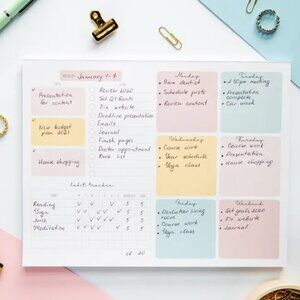 WEEK: January 1-7
✓ Presentation
for content
✓ New budget
plan 2021
✓ Home shopping
Review 2020
Set Q1 Goals
Fix website
Deadline presentation
Emails
Journal
Finish pages
Doctor appointment
Race list
habit tracker
Reading
Yoga
Juice
Meditation
Monday
• Dam dentist
• Schedule posts
• Review content
Tuesday
• 2:30pm meeting
• Presentation
complete
• Car work
Wednesday
• Course work
• Year schedule
• Yoga class
Thursday
• Course work
• Presentation
• Home shopping
Friday
• Declutter living
room
• Course work
• Yoga class
Weekend
• Set goals 2020
• Fix website
• Journal